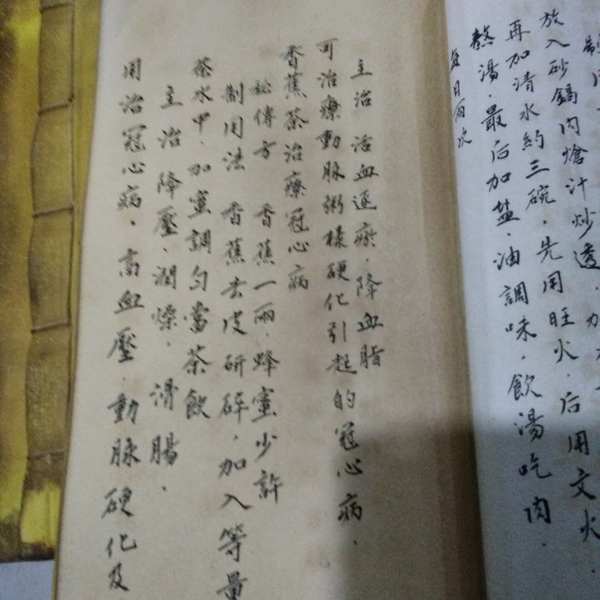 制
放入砂鍋內熗汁炒透，加
再加清水約三碗，先用旺火，后用文火
熬湯，最后加盐、油調味，飲湯吃肉，
每日兩次
主治 活血逐瘀，降血脂
可治療動脉粥樣硬化引起的冠心病，
香蕉茶治療冠心病
秘傳方 香蕉一兩，蜂蜜少許
制用法 香蕉去皮研碎，加入等量
茶水中，加蜜調勻當茶飲
主治降壓，潤燥，滑腸，
用治冠心病，高血壓，動脉硬化及